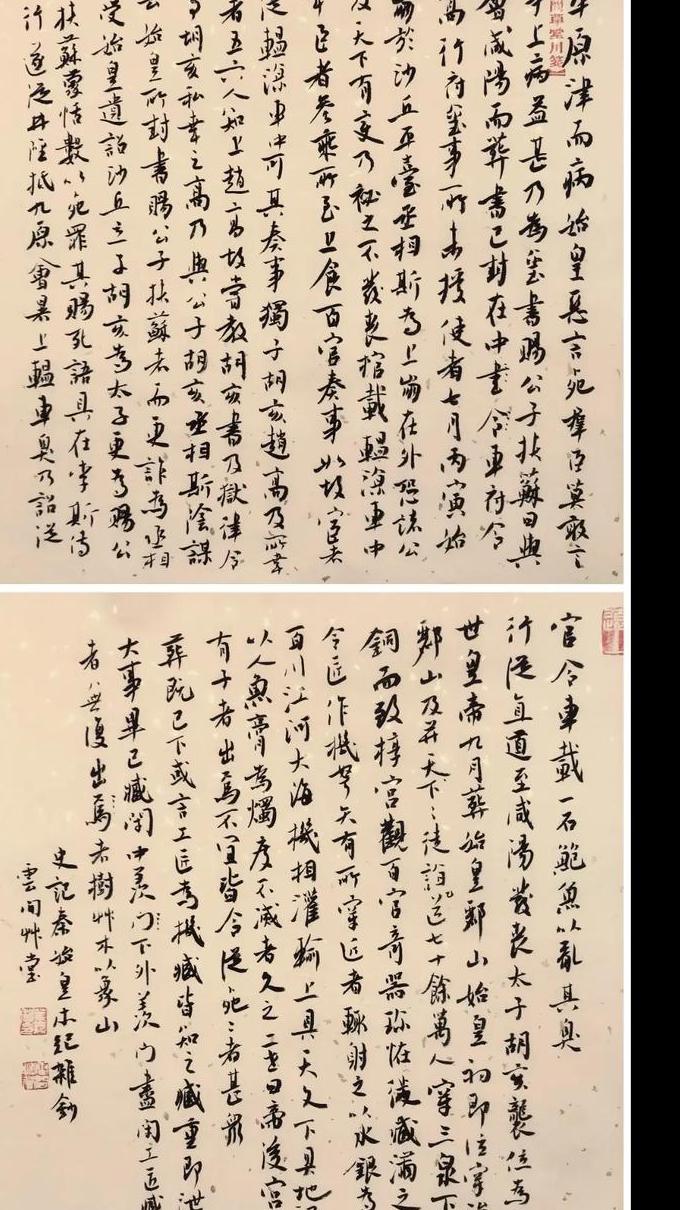 原津而病始皇惡言死羣臣莫敢言
上病益甚乃為璽書賜公子扶蘇曰與
會咸陽而葬書已封在中車府令
高行府璽事所未授使者七月丙寅始
崩於沙丘平臺丞相斯為上崩在外恐諸公
及天下有變乃祕之不發喪棺載轀涼車中
臣者參乘所至上食百官奏事如故宦者
從轀涼車中可其奏事獨子胡亥趙高及所幸
者五六人知上趙高故嘗教胡亥書及獄律令
胡亥私幸之高乃與公子胡亥丞相斯陰謀
去始皇所封書賜公子扶蘇者而更詐為丞相
受始皇遺詔沙丘立子胡亥為太子更為賜公
扶蘇蒙恬數以死罪其賜死語具在李斯傳
行遂從井陘抵九原會暑上轀車臭乃詔從
官令車載一石鮑魚以亂其臭
行從直道至咸陽發喪太子胡亥襲位為
世皇帝九月葬始皇酈山始皇初即位穿治
酈山及并天下天下徒詣送七十餘萬人穿三泉下
銅而致椁宮觀百官奇器珍怪徙藏滿之
令匠作機弩矢有所穿近者輒射之以水銀為
百川江河大海機相灌輸上具天文下具地
以人魚膏為燭度不滅者久之二世曰帝後宮
有子者出焉不宜皆令從死死者甚眾
葬既已下或言工匠為機藏皆知之藏重即泄
大事畢已藏閉中羨門下外羨門盡閉工匠藏
者無復出焉者樹艸木以象山
史記秦始皇本紀雜鈔
雲間艸堂